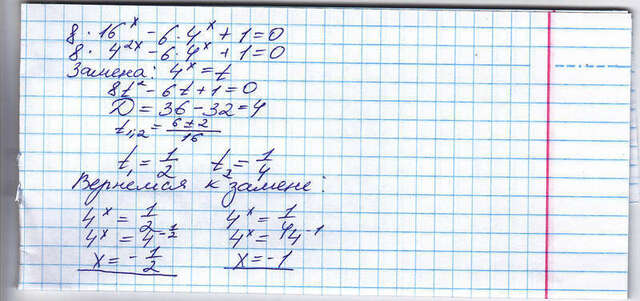 8 · 16^x - 6 · 4^x + 1 = 0
8 · 4^2x - 6 · 4^x + 1 = 0
Замена: 4^x = t
8t^2 - 6t + 1 = 0
D = 36 - 32 = 4
t1,2 = (6 ± 2)/16
t1 = 1/2 t2 = 1/4
Вернемся к замене:
4^x = 1/2 4^x = 1/4
4^x = 4^-1/2 4^x = 4^-1
x = -1/2 x = -1